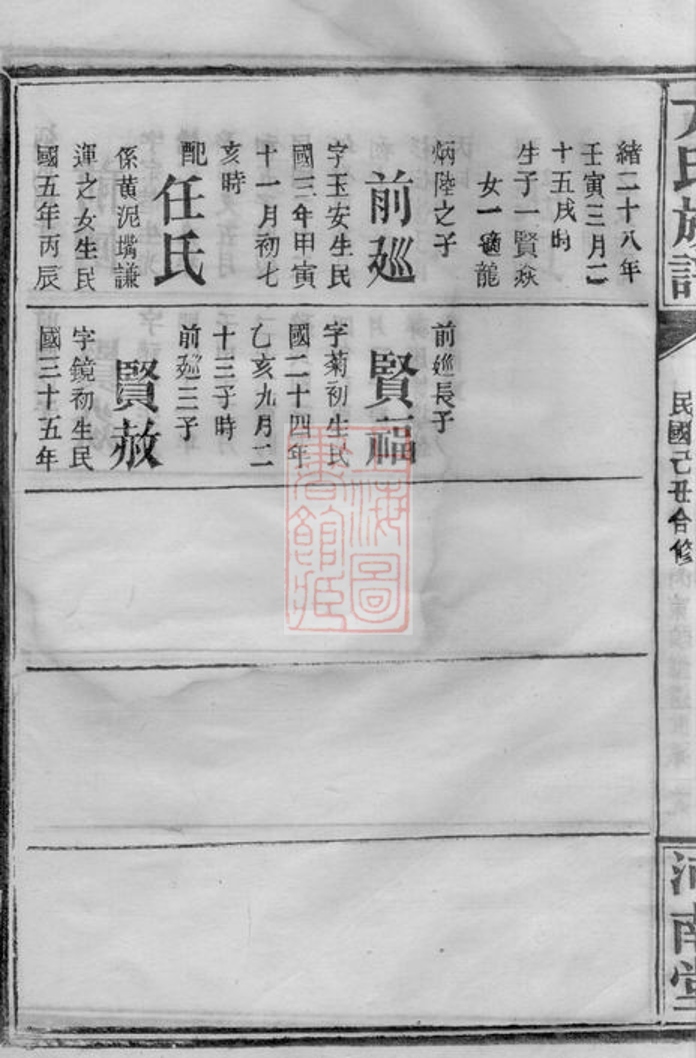 方氏族譜
民國己丑合修
河南堂
緒二十八年
壬寅三月二
十五戌時
生子一賢焱
女一適龍
炳陸之子
前㢟
字玉安生民
國三年甲寅
十一月初七
亥時
配
任氏
係黃泥嘴謙
運之女生民
國五年丙辰
前㢟長子
賢福
字菊初生民
國二十四年
乙亥九月二
十三子時
前㢟三子
賢赦
字鏡初生民
國三十五年
上海圖書館藏